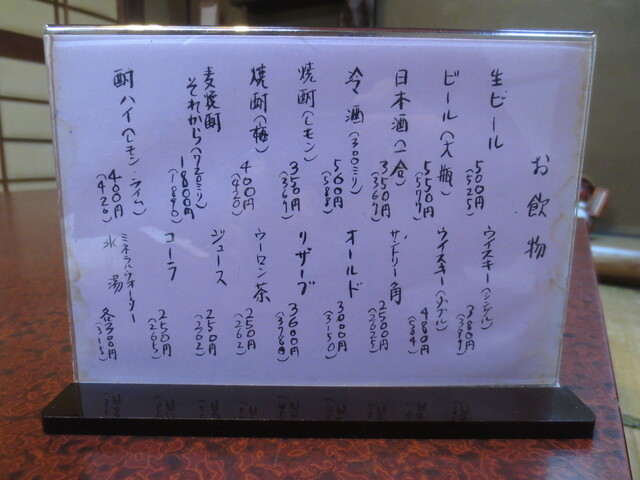 お飲物
生ビール 500円 (525)
ビール(大瓶) 550円 (577)
日本酒(一合) 350円 (367)
冷酒(300ミリ) 500円
焼酎(レモン) 350円 (367)
焼酎(梅) 400円 (420)
麦焼酎 それから(720ミリ) 1800円 (1890)
酎ハイ(レモン・ライム) 400円 (420)
ウイスキー(シングル) 380円 (389)
ウイスキー(ダブル) 480円 (504)
サントリー角 2500円 (2625)
オールド 3000円 (3150)
リザーブ 3600円 (3780)
ウーロン茶 250円 (262)
ジュース 250円 (262)
コーラ 250円
ミネラルウォーター 氷 湯 各300円 (315)